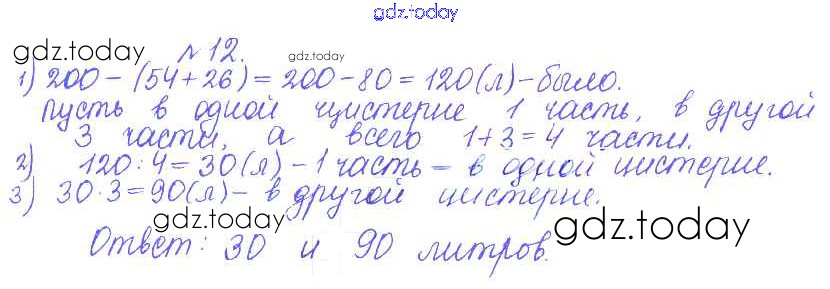 gdz.today
gdz.today №12. gdz.today
1) 200-(54+26)=200-80=120(л)-было.
Пусть в одной цистерне 1 часть, в другой
3 части, а всего 1+3=4 части.
2) 120:4=30(л)-1 часть - в одной цистерне.
3) 30·3=90(л)- в другой цистерне.
gdz.today gdz.today
Ответ: 30 и 90 литров.